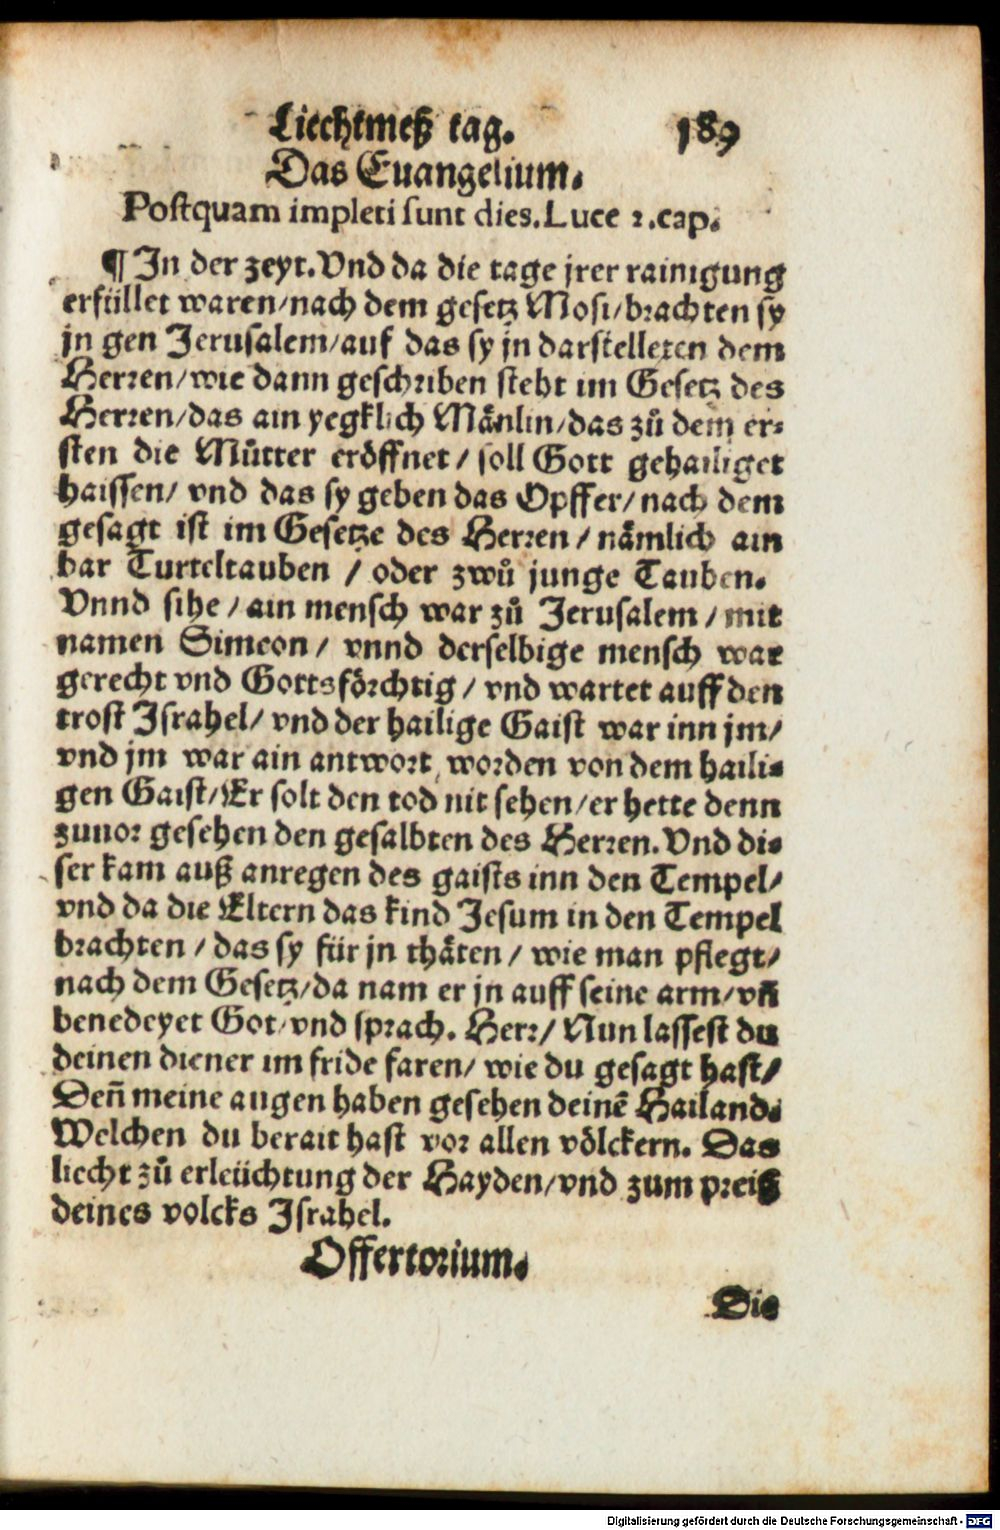 Liechtmeß tag. 189
Das Euangelium.
Postquam impleti sunt dies. Luce 2. cap.
¶ In der zeyt. Vnd da die tage jrer rainigung
erfüllet waren/nach dem gesetz Mosi/brachten sy
jn gen Jerusalem/auf das sy jn darstelleten dem
Herren/wie dann geschriben steht im Gesetz des
Herren/das ain yegklich Mänlin/das zů dem er-
sten die Můtter eröffnet/soll Gott gehailiget
haissen/ vnd das sy geben das Opffer/nach dem
gesagt ist im Gesetze des Herren/nämlich ain
bar Turteltauben / oder zwů junge Tauben.
Vnnd sihe/ain mensch war zů Jerusalem/mit
namen Simeon/ vnnd derselbige mensch war
gerecht vnd Gottsförchtig/ vnd wartet auff den
trost Jsrahel/ vnd der hailige Gaist war inn jm/
vnd jm war ain antwort, worden von dem haili-
gen Gaist/Er solt den tod nit sehen/er hette denn
zuuor gesehen den gesalbten des Herren. Vnd di-
ser kam auß anregen des gaists inn den Tempel/
vnd da die Eltern das kind Jesum in den Tempel
brachten/das sy für jn thäten/ wie man pflegt/
nach dem Gesetz/da nam er jn auff seine arm/vñ
benedeyet Got/vnd sprach. Herr/ Nun lassest du
deinen diener im fride faren/ wie du gesagt hast/
Deñ meine augen haben gesehen deinē Hailand.
Welchen du berait hast vor allen völckern. Das
liecht zů erleüchtung der Hayden/vnd zum preiß
deines volcks Jsrahel.
Offertorium.
Die
Digitalisierung gefördert durch die Deutsche Forschungsgemeinschaft - DFG